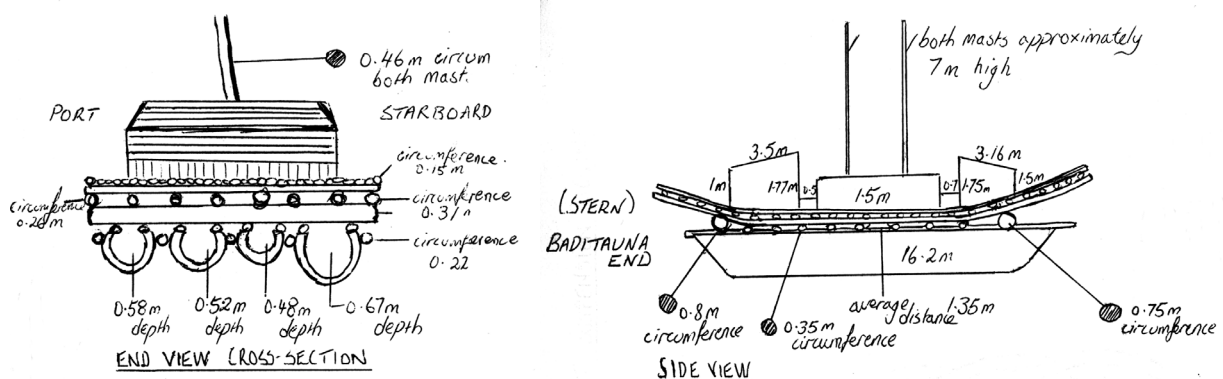 0.46m circum
both mast.
PORT
STARBOARD
circumference.
0.15m
circumference
0.26m
circumference
0.31m
circumference
0.22
0.58m
depth
0.52m
depth
0.48m
depth
0.67m
depth
END VIEW CROSS-SECTION
both masts approximately
7m high
3.5m
3.16m
1m
1.77m
0.5
1.5m
0.7
1.75m
1.5m
(STERN)
BADITAUNA
END
16.2m
0.8m
circumference
0.35m
circumference
average 1.35m
distance
0.75m
circumference
SIDE VIEW